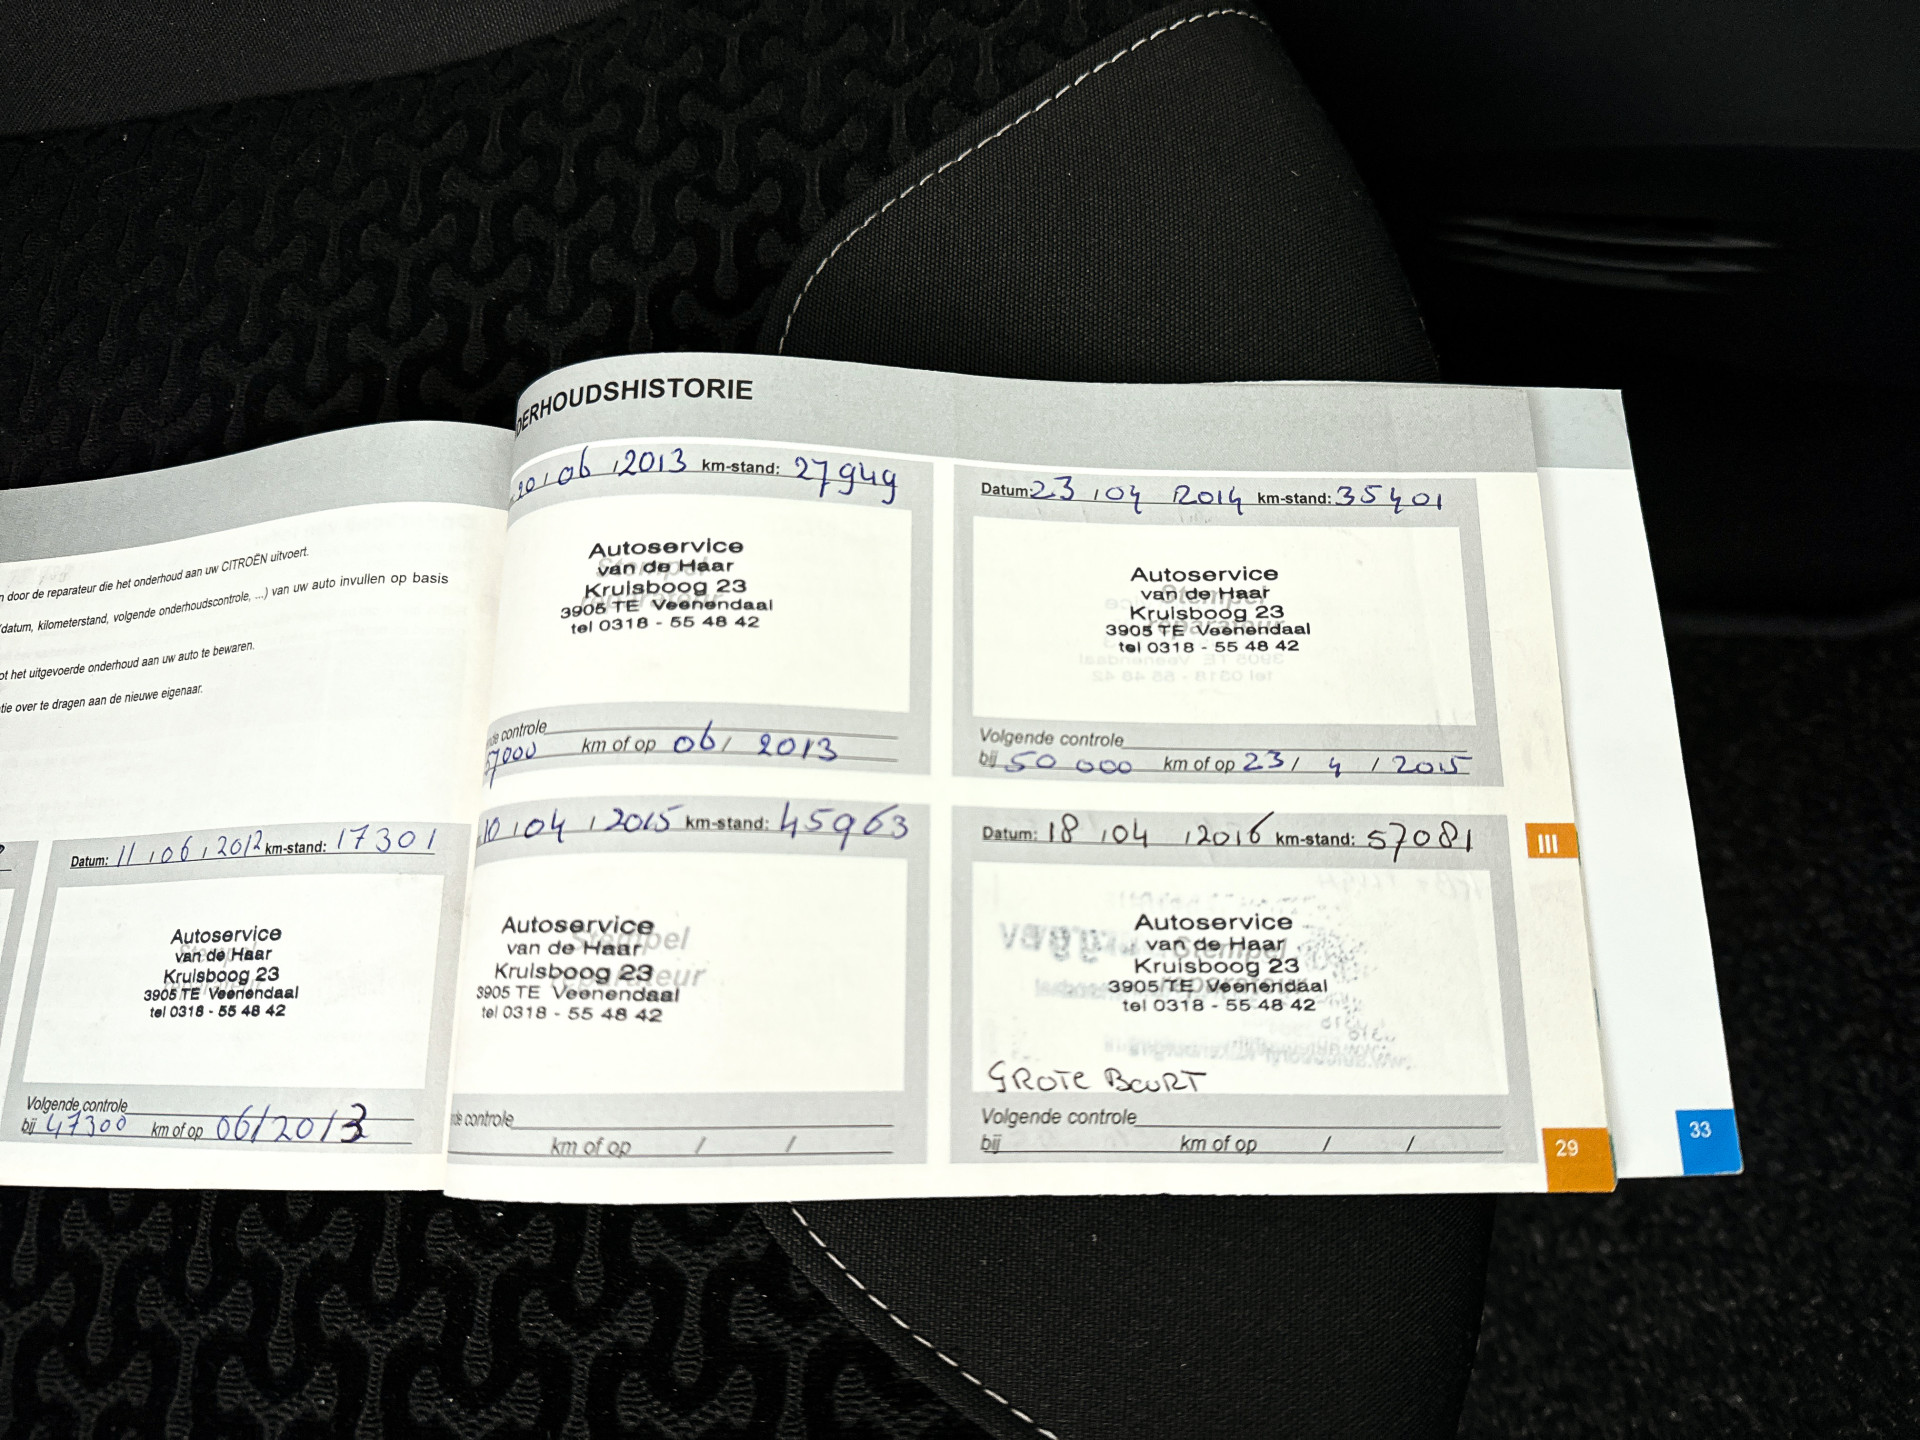 n door de reparateur die het onderhoud aan uw CITROËN uitvoert.
datum, kilometerstand, volgende onderhoudscontrole, ...) van uw auto invullen op basis
ot het uitgevoerde onderhoud aan uw auto te bewaren.
tie over te dragen aan de nieuwe eigenaar.
Datum: 11 / 06 / 2012 km-stand: 17301
Autoservice
van de Haar
Kruisboog 23
3905 TE Veenendaal
tel 0318 - 55 48 42
Volgende controle
bij 47300 km of op 06/2013
DERHOUDSHISTORIE
06 / 2013 km-stand: 27949
Autoservice
van de Haar
Kruisboog 23
3905 TE Veenendaal
tel 0318 - 55 48 42
de controle
57000 km of op 06 / 2013
Datum: 23 / 04 2014 km-stand: 35401
Autoservice
van de Haar
Kruisboog 23
3905 TE Veenendaal
tel 0318 - 55 48 42
Volgende controle
bij 50 000 km of op 23 / 4 / 2015
10 / 04 / 2015 km-stand: 45963
Autoservice
van de Haar
Kruisboog 23
3905 TE Veenendaal
tel 0318 - 55 48 42
de controle
km of op / /
Datum: 18 / 04 / 2016 km-stand: 57081
Autoservice
van de Haar
Kruisboog 23
3905 TE Veenendaal
tel 0318 - 55 48 42
GROTE BEURT
Volgende controle
bij km of op / /
III
29
33